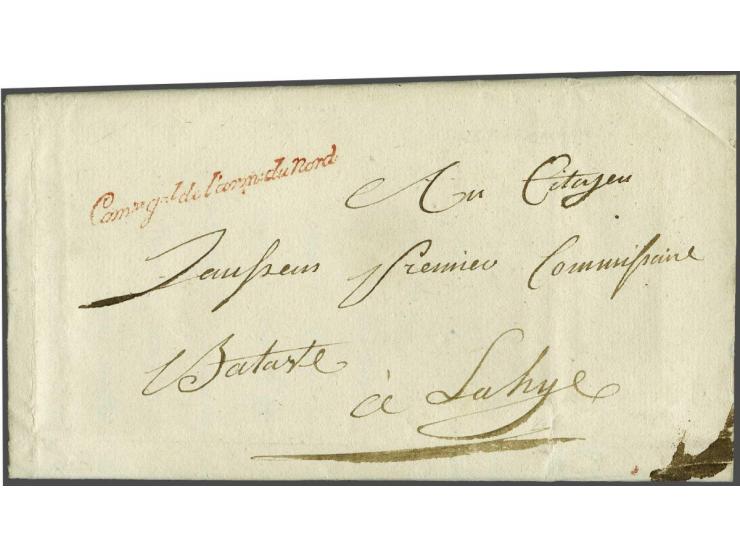 Com.re g.al de l'arm.ée du Nord
Au Citoyen
Janssens Premier Commissaire
Batave
à Lahye